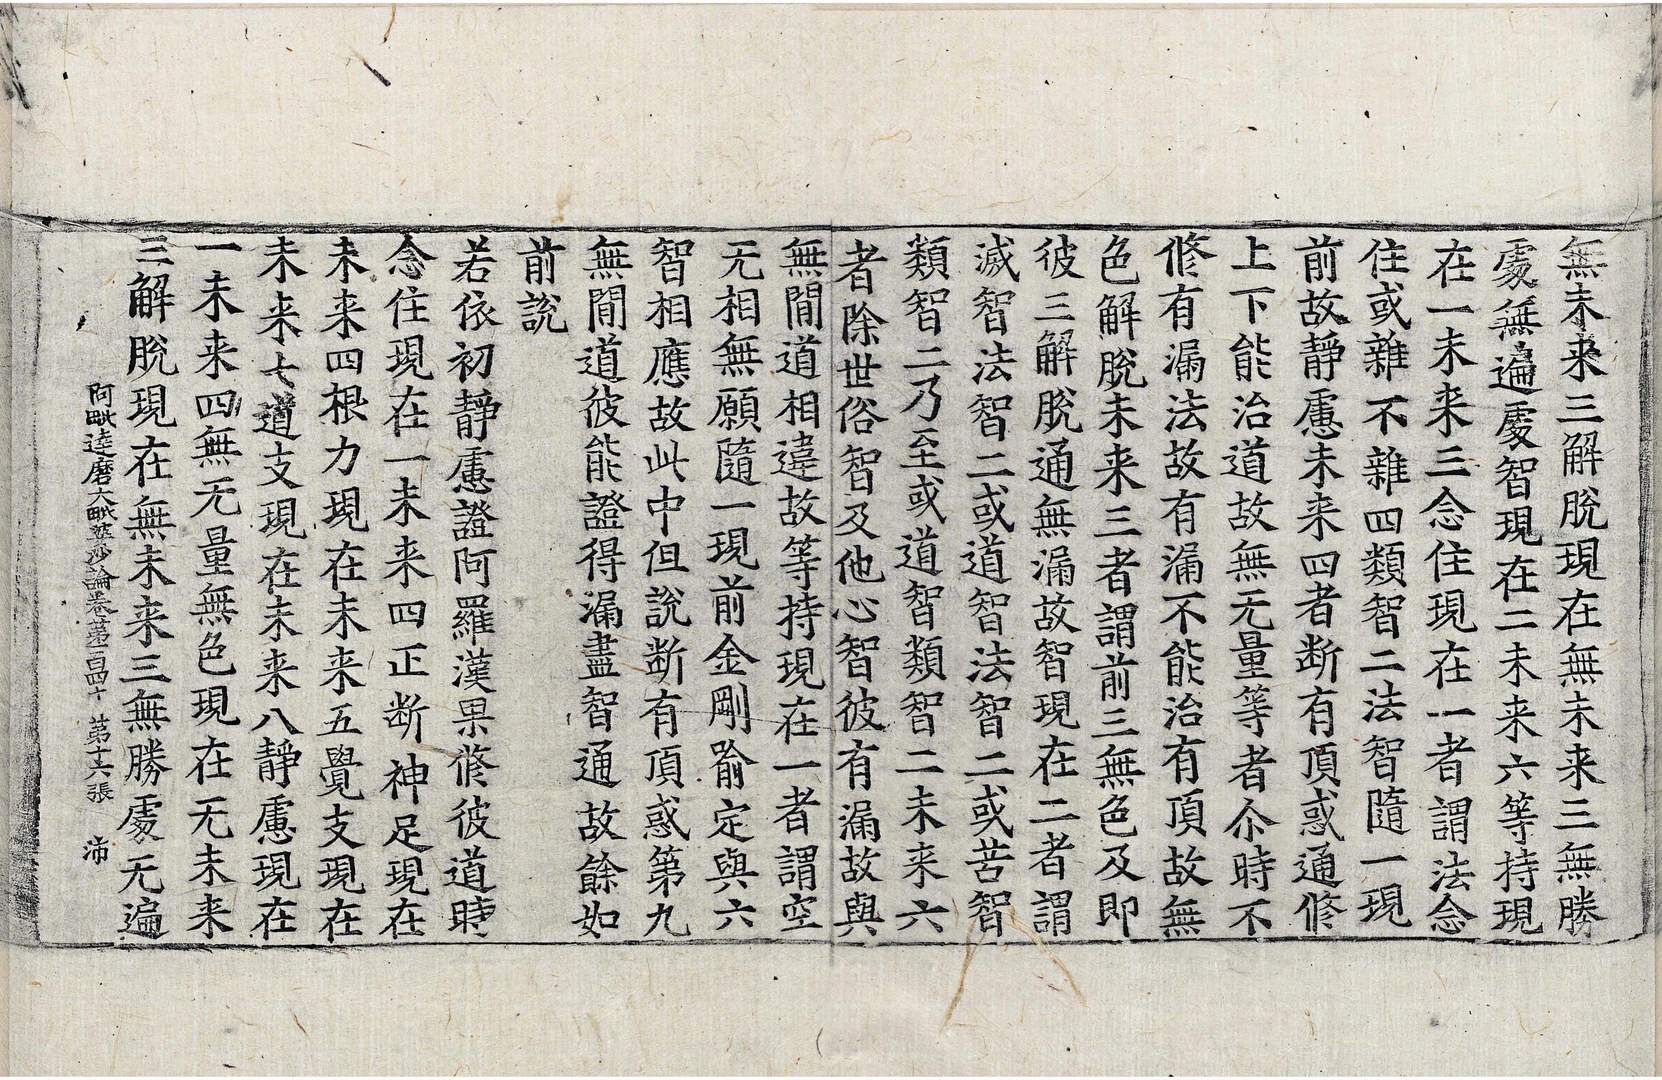 無未来三解脫現在無未来三無勝
處無遍處智現在二未来六等持現
在一未来三念住現在一者謂法念
住或雜不雜四類智二法智隨一現
前故靜慮未来四者断有頂惑通修
上下能治道故無无量等者尒時不
修有漏法故有漏不能治有頂故無
色解脫未来三者謂前三無色及即
彼三解脫通無漏故智現在二者謂
滅智法智二或道智法智二或苦智
類智二乃至或道智類智二未来六
者除世俗智及他心智彼有漏故與
無閒道相違故等持現在一者謂空
无相無願隨一現前金剛喻定與六
智相應故此中但說断有頂惑第九
無閒道彼能證得漏盡智通故餘如
前說
若依初靜慮證阿羅漢果修彼道時
念住現在一未来四正断神足現在
未来四根力現在未来五覺支現在
未来七道支現在未来八靜慮現在
一未来四無无量無色現在无未来
三解脫現在無未来三無勝處无遍
阿毗達磨大毗婆沙論卷第一百四十　第十六張　沛